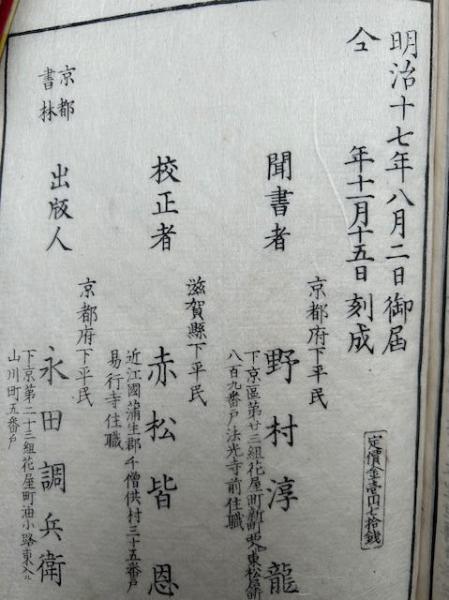 明治十七年八月二日御届
仝年十一月十五日刻成
定價金壹円七拾錢
聞書者
京都府下平民
野村淳龍
下京區第廿三組花屋町新町西入東松屋町
八百九番戸法光寺前住職
校正者
滋賀縣下平民
赤松皆恩
近江國蒲生郡千僧供村三十五番戸
易行寺住職
京都
書林
出版人
京都府下平民
永田調兵衛
下京第二十三組花屋町油小路東入ル
山川町五番戸